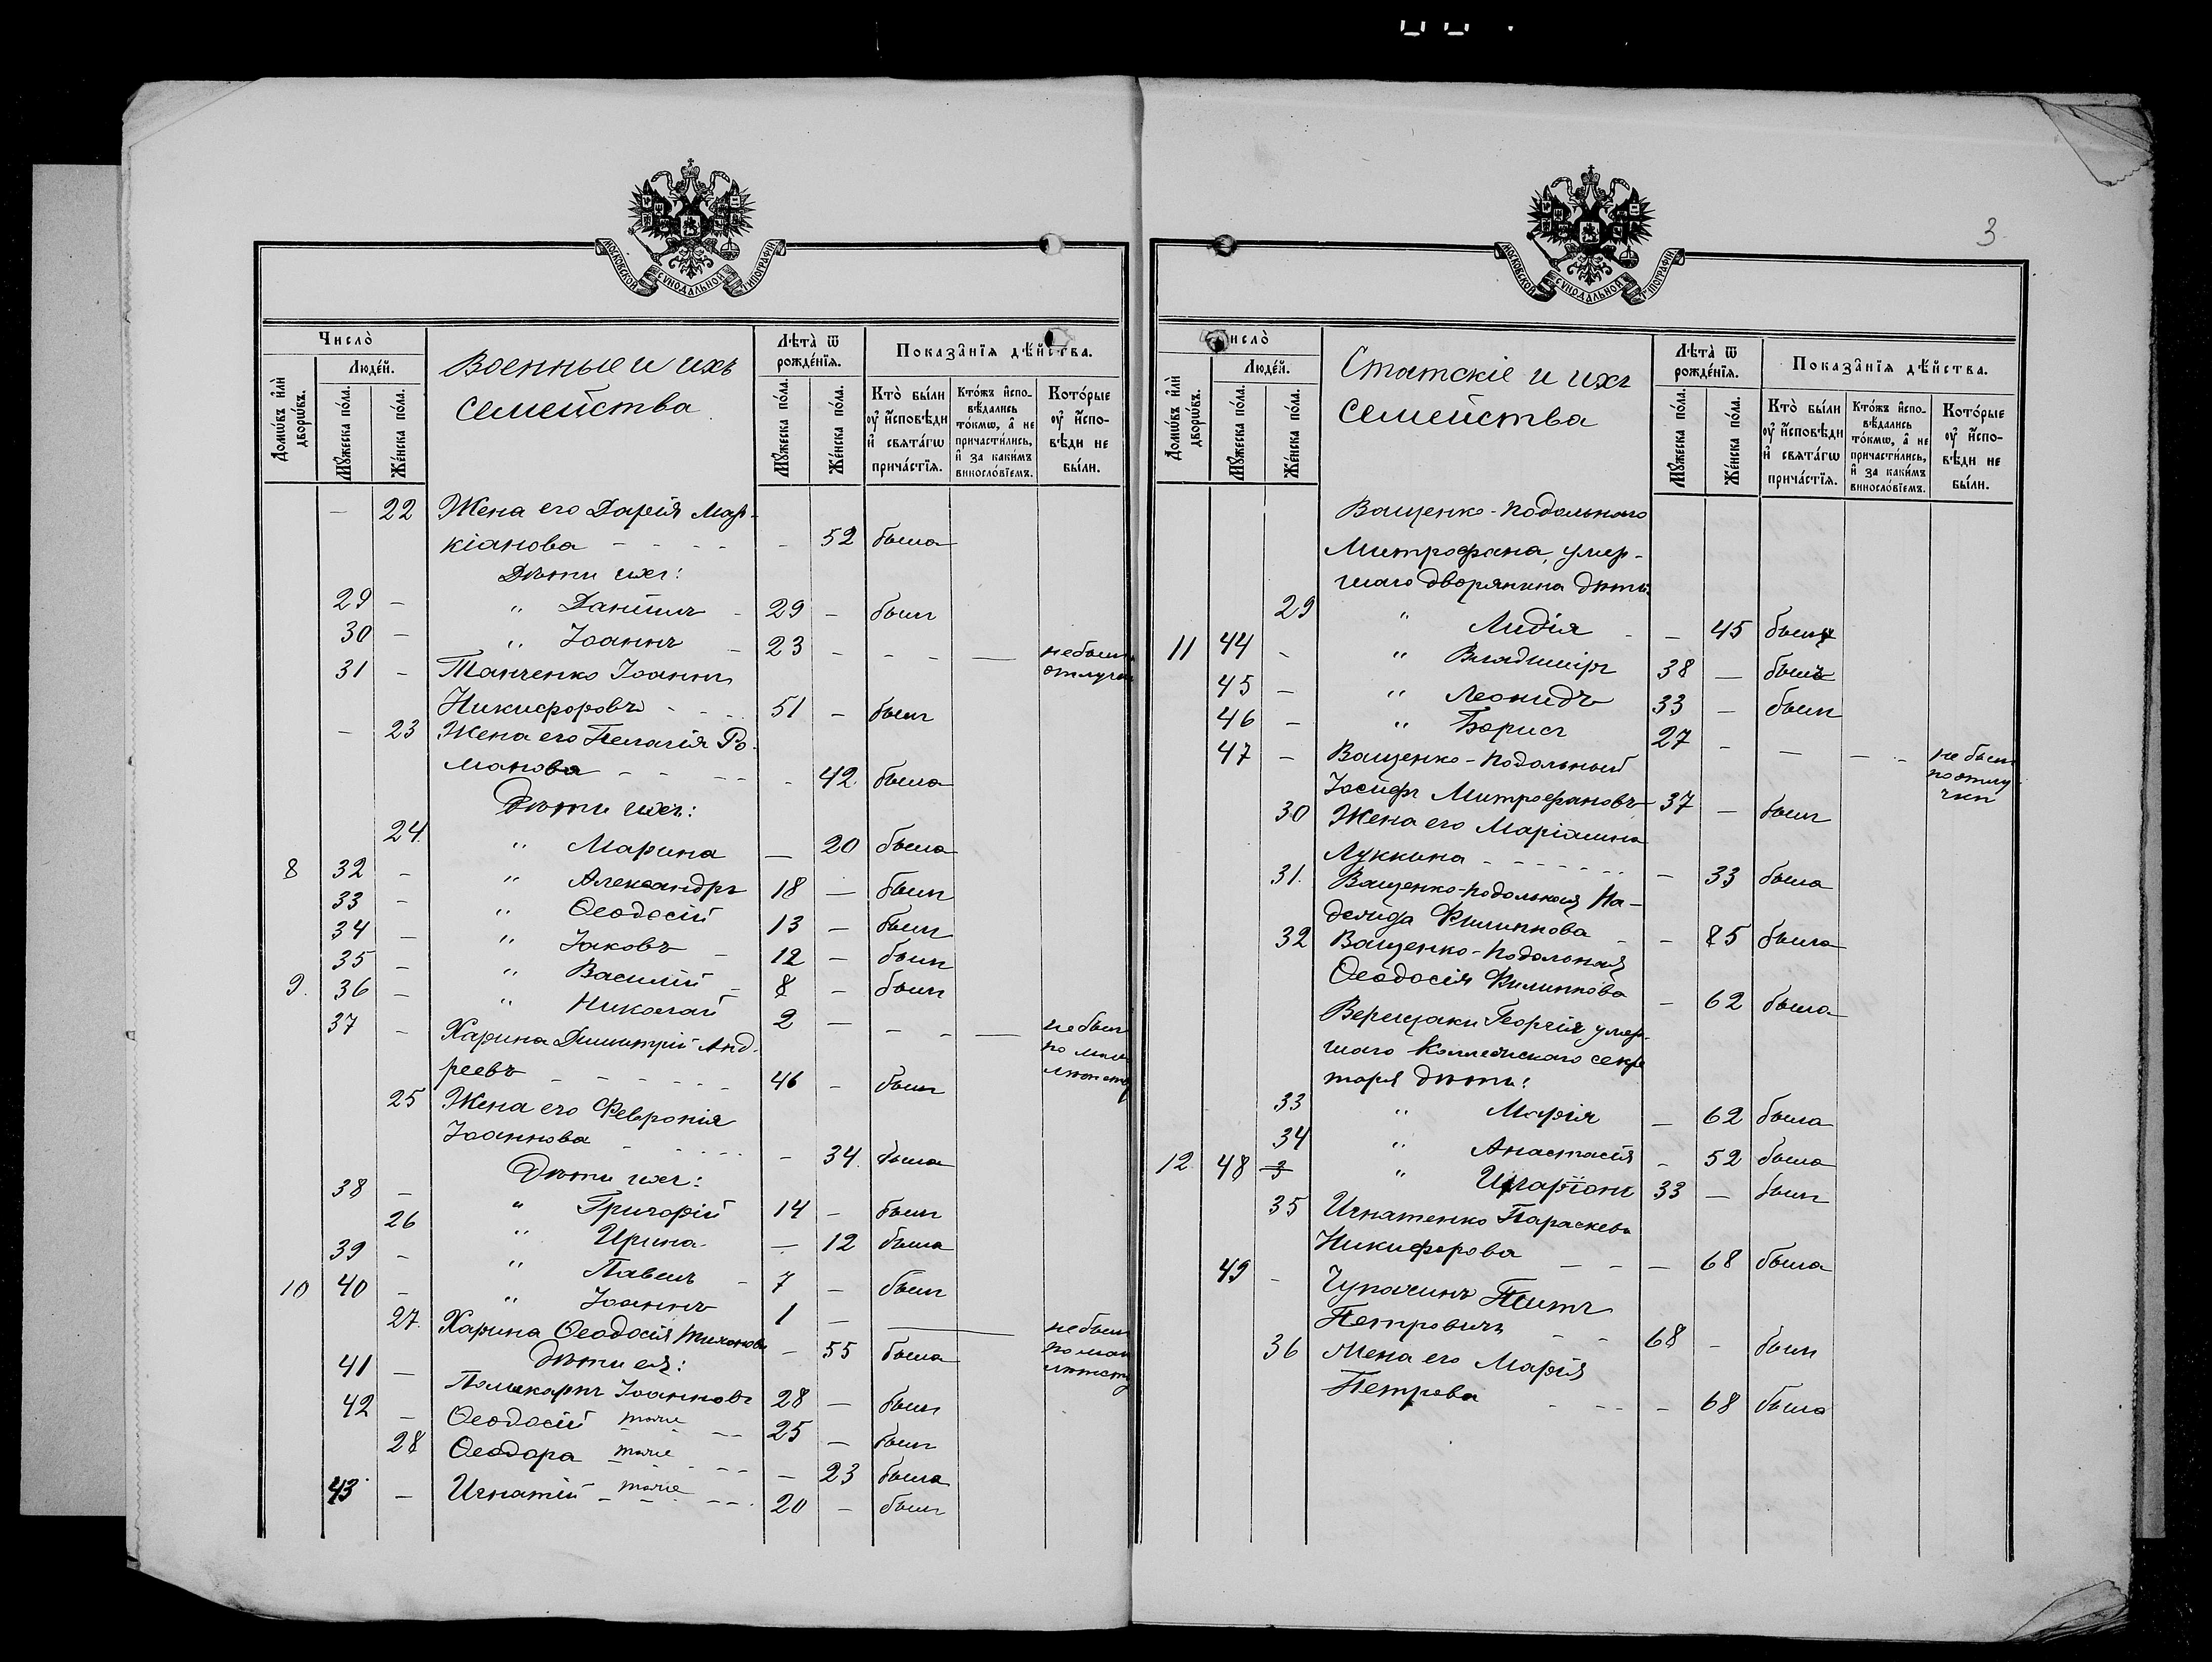 МОСКОВСКОЙ СѴНОДАЛЬНОЙ ТИПОГРАФІИ
Число̀
Домѡ́въ и҆лѝ дворѡ́въ.
Люде́й.
Мꙋ́жеска по́ла.
Же́нска по́ла.
Военные и ихъ
семейства
Лѣ́та ѿ рожде́нїѧ.
Мꙋ́жеска по́ла.
Же́нска по́ла.
Показа̑нїѧ дѣ́йства.
Кто̀ бы́ли оу҆ и҆сповѣ́ди и҆ свѧта́гѡ прича́стїѧ.
Кто́жъ и҆спо- вѣ́дались то́кмѡ, а҆ не причасти́лись, и҆ за каки́мъ виносло́вїемъ.
Кото́рые оу҆ и҆спо- вѣ́ди не бы́ли.
— 22 Жена его Дарія Мар-
кіанова - - - - - 52 была
Дѣти ихъ:
29 - " Даніилъ - 29 - былъ
30 - " Іоаннъ - 23 - - - — не былъ
31 - Танченко Іоаннъ отлуч
Никифоровъ - - - 51 - былъ
- 23 Жена его Пелагія Ро-
манова - - - - - 42 была
Дѣти ихъ:
24. " Марина — 20 была
8 32 - " Александръ 18 — былъ
33 - " Ѳеодосій 13 - былъ
34 - " Іаковъ - 12 - былъ
35 - " Василій - 8 - былъ
9. 36 - " Николай 2 — - - — не былъ
37 - Харина Димитрій Анд- по мало
реевъ - - - - - - 46 - былъ лѣтств
25 Жена его Февронія
Іоаннова - - - - - - 34. была
Дѣти ихъ:
38 - " Григорій 14 - былъ
26 " Ирина — 12 была
39 - " Павелъ - 7 - былъ
10 40 - " Іоаннъ 1 — — не былъ
27. Харина Ѳеодосія Тихонова - 55 была по мал
Дѣти ея: лѣтств
41 — Поликарпъ Іоанновъ 28 — былъ
42 - Ѳеодосій тоже - - 25 - былъ
28 Ѳеодора тоже - - - — 23 была
43 - Игнатій тоже - - - 20 - былъ
3
МОСКОВСКОЙ СѴНОДАЛЬНОЙ ТИПОГРАФІИ
Число̀
Домѡ́въ и҆лѝ дворѡ́въ.
Люде́й.
Мꙋ́жеска по́ла.
Же́нска по́ла.
Статскіе и ихъ
семейства
Лѣ́та ѿ рожде́нїѧ.
Мꙋ́жеска по́ла.
Же́нска по́ла.
Показа̑нїѧ дѣ́йства.
Кто̀ бы́ли оу҆ и҆сповѣ́ди и҆ свѧта́гѡ прича́стїѧ.
Кто́жъ и҆спо- вѣ́дались то́кмѡ, а҆ не причасти́лись, и҆ за каки́мъ виносло́вїемъ.
Кото́рые оу҆ и҆спо- вѣ́ди не бы́ли.
Ващенко-Подольнаго
Митрофана, умер-
шаго дворянина дѣти:
29 " Лидія - - 45 была
11 44 - " Владиміръ 38 — былъ
45 - " Леонидъ 33 - былъ
46 - " Борисъ 27 - — — - не былъ
47 - Ващенко-Подольный по отлу-
Іосифъ Митрофановъ 37 - былъ чки
30 Жена его Маріамна
Лукина - - - - - - — 33 была
31. Ващенко-Подольная На-
дежда Филиппова - - 85 была
32 Ващенко-Подольная
Ѳеодосія Филиппова - 62 была
Верещаки Георгія умер-
шаго Коллежскаго секре
таря дѣти:
33 " Марія — 62 была
34 " Анастасія - 52 была
12 48 3 " Иларіонъ 33 — былъ
35 Игнатенко Параскева
Никифорова - - — 68 была
49 - Чупахинъ Титъ
Петровичъ - - 68 - былъ
36 Жена его Марія
Петрова - - - - 68 была